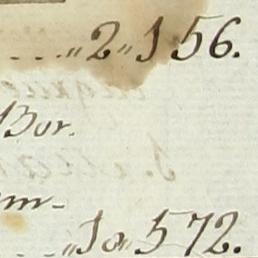 ...„2„156.
Bor.
m-
..„10„572.